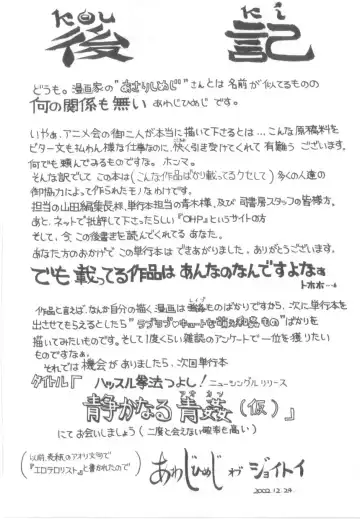 後記
どうも。漫画家の"あさりしめじ"さんとは名前が似てるものの
何の関係も無い あわじひめじ です。
いやぁ、アニメ会の御二人が本当に描いて下さるとは…こんな原稿料を
ビター文も払わん様な仕事なのに、快く引き受けてくれて有難うございます。
何でも頼んでみるものですな。ホンマ。
そんな訳でして この本は(こんな作品ばかり載ってるクセして)多くの人達の
御協力によって作られたモノなわけです。
担当の山田編集長様、単行本担当の青木様、及び司書房スタッフの皆様方。
あと、ネットで批評して下さったらしい『OHP』というサイトの方
そして、今この後書きを読んでくれてる あなた。
あなた方のおかげで この単行本は できあがりました、ありがとうございます。
でも載ってる作品はあんなのなんですよなぁ
トホホ…
作品と言えば、なんか自分の描く漫画は ものばかりですから、次に単行本を
出させてもらえるとしたら ばかりを
描いてみたいものです。そして1度くらい雑誌のアンケートで一位を獲りたい
ものですなぁ。
それでは機会がありましたら、次回単行本
タイトル『ハッスル拳法つよし! ニューシングルリリース
静かなる青姦(仮)』
にてお会いしましょう(二度と会えない確率も高い)
(以前、表紙のアオリ文句で
『エロテロリスト』と書かれたので)
あわじひめじ ジョイトイ
2002.12.24